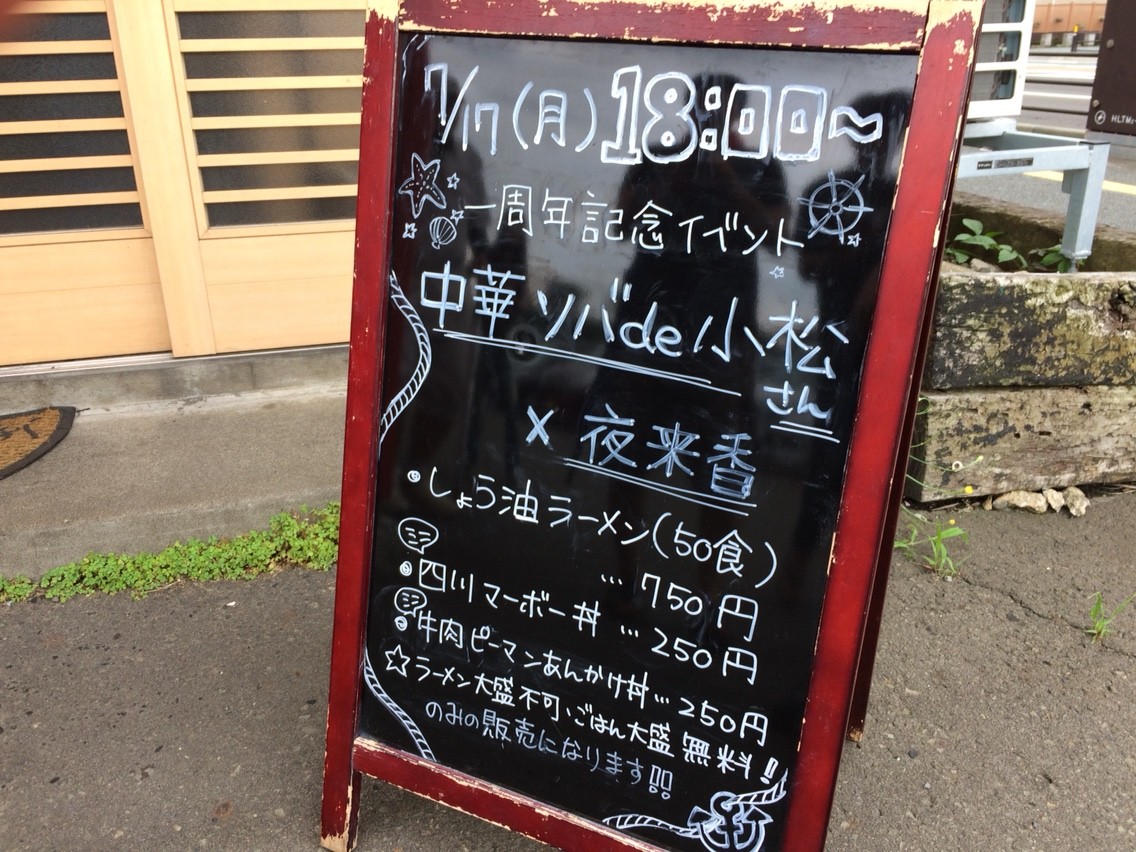 7/17(月)18:00〜
一周年記念イベント
中華ソバde小松
さん
× 夜来香
しょう油ラーメン(50食)
… 750円
四川マーボー丼 … 250円
牛肉ピーマンあんかけ丼… 250円
☆ラーメン大盛不可、ごはん大盛無料!
のみの販売になります!!
HLTM